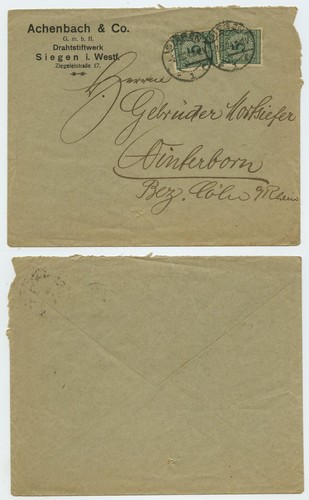 Achenbach & Co.
G. m. b. H.
Drahtstiftwerk
Siegen i. Westf.
Ziegeleistraße 17.
Herren
Gebrüder
Winterborn
Bez. Cöln a/Rhein
5 5